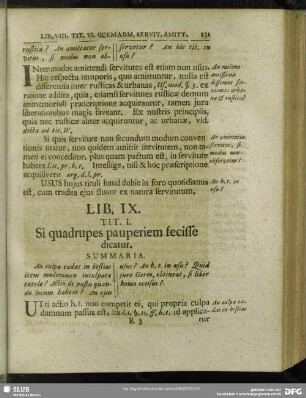 LIB. VIII. TIT. VI. QUEMADM. SERVIT. AMITT. 131
rustica? An amittatur ser-
vitus, si modus non ob-
servetur? An hic tit. in
usu?
INter modos amittendi servitutes est etiam non usus.
Hic respectu temporis, quo amittuntur, nulla est
differentia inter rusticas & urbanas,
ratione addita, quia, etiamsi servitutes rusticæ demum
immemoriali præscriptione acquirantur, tamen jura
liberationibus magis favent. Ex nostris principiis,
quis nec rusticæ aliter acquiruntur, ac urbanæ, vid.
dicta ad tit. IV.
An ratione
amissionis
differant
urbana
& rustica?
Si quis servitute non secundum modum conven-
tionis utatur, non quidem amittit servitutem, non ta-
men ei conceditur, plus quam pactum est, in servitute
habere Intellige, nisi & hoc præscriptione
acquisiverit arg. d. l. pr.
An amittatur
servitus, si
modus non
observetur?
USUS hujus tituli haud dubie in foro quotidianus
est, cum eradica ejus fluant ex natura servitutum.
An h. t. in
usu?
LIB. IX.
TIT. I.
Si quadrupes pauperiem fecisse
dicatur.
SUMMARIA.
An culpa cadat in bestias
item moderamen inculpatæ
tutelæ? Actio de pastu quan-
do locum habeat? An ejus
usus? An h. t. in usu? Quid
jure Germ. obtineat, si liber
homo occisus?
UTri actio h. t. non competit ei, qui propria culpa
damnum passus est, id applica-
An culpa ca-
dat in bestias
R 3
tur
SLUB